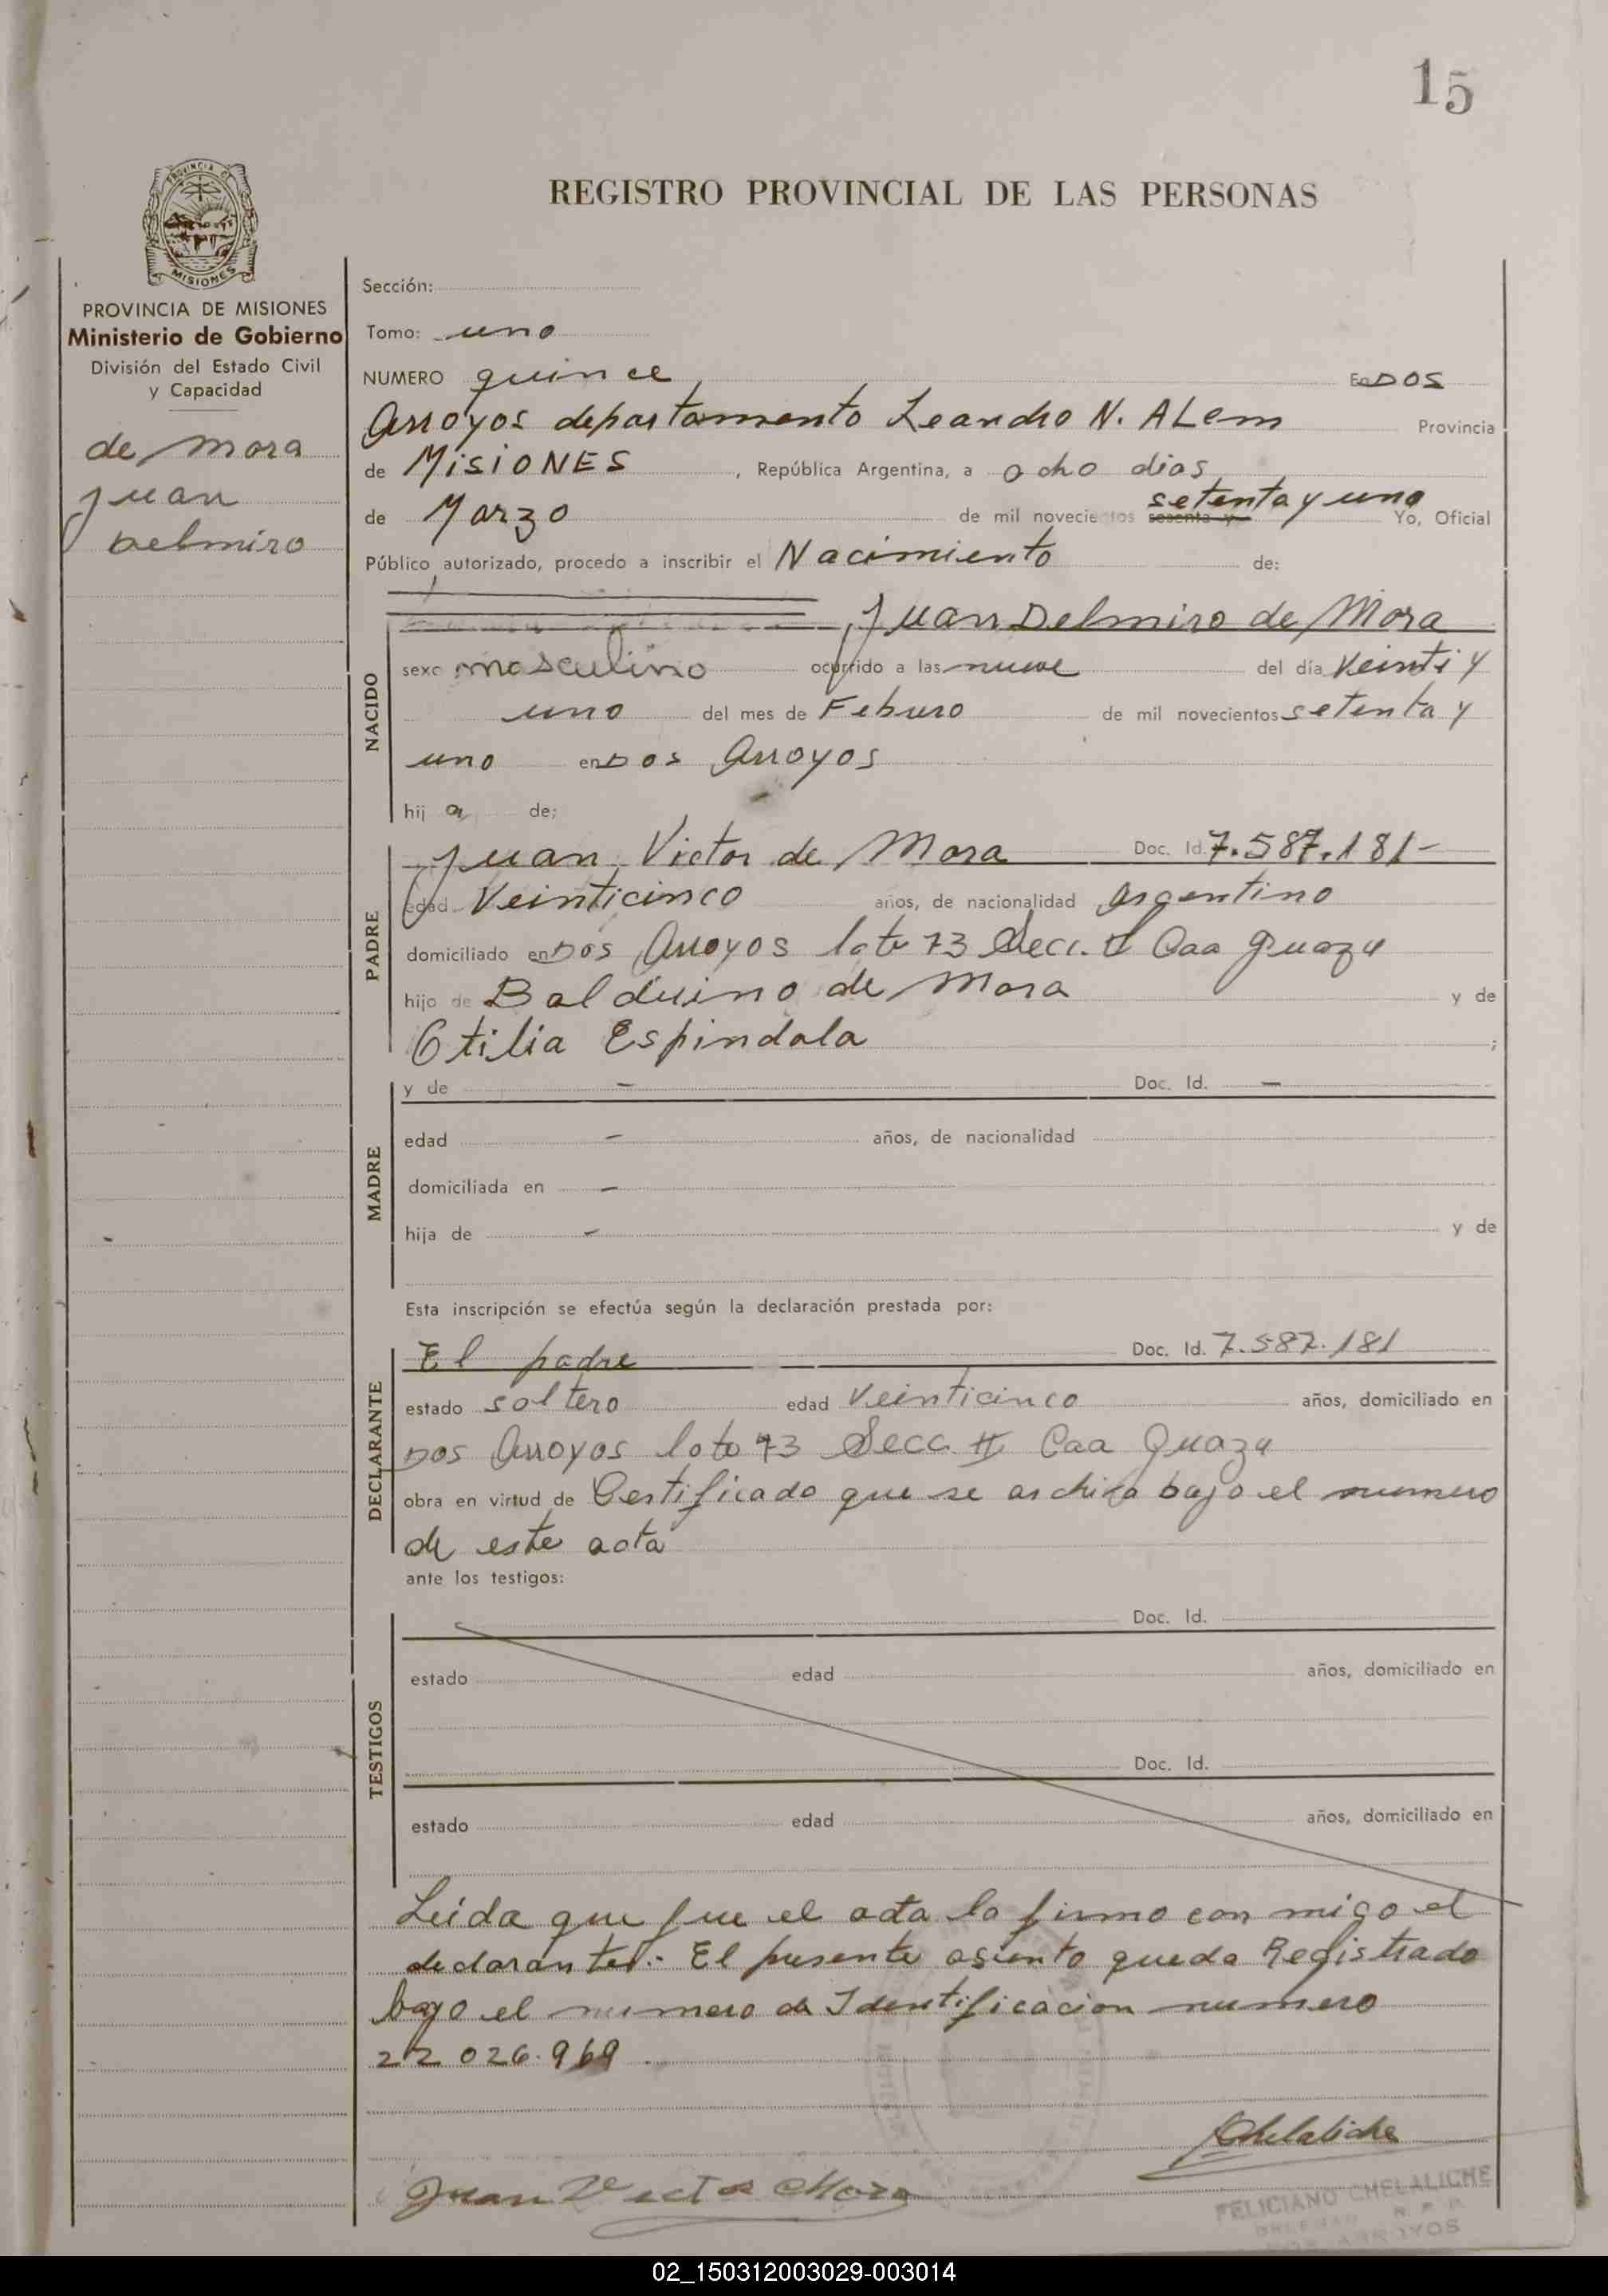 15
PROVINCIA DE
MISIONES
REGISTRO PROVINCIAL DE LAS PERSONAS
PROVINCIA DE MISIONES
Ministerio de Gobierno
División del Estado Civil
y Capacidad
de Mora
Juan
Delmiro
Sección:
Tomo: uno
NUMERO quince En DOS
Arroyos departamento Leandro N. ALem Provincia
de MISIONES, República Argentina, a ocho dias
de Marzo de mil novecientos sesenta y setenta y uno Yo, Oficial
Público autorizado, procedo a inscribir el Nacimiento de:
Juan Delmiro de Mora
NACIDO
sexo masculino ocurrido a las nueve del día Veinti y
uno del mes de Febrero de mil novecientos setenta y
uno en Dos Arroyos
hij o de;
PADRE
Juan Victor de Mora Doc. Id. 7.587.181-
edad Veinticinco años, de nacionalidad argentino
domiciliado en Dos Arroyos lote 73 Secc. II Caa Guazu
hijo de Balduino de Mora y de
Otilia Espindola ;
MADRE
y de - Doc. Id. -
edad - años, de nacionalidad
domiciliada en -
hija de - y de
Esta inscripción se efectúa según la declaración prestada por:
DECLARANTE
El padre Doc. Id. 7.587.181
estado soltero edad Veinticinco años, domiciliado en
Dos Arroyos lote 73 Secc. II Caa Guazu
obra en virtud de Certificado que se archiva bajo el numero
de este acta
ante los testigos:
TESTIGOS
Doc. Id.
estado edad años, domiciliado en
Doc. Id.
estado edad años, domiciliado en
Leida que fue el acta la firmo con migo el
declarante.- El presente asiento queda Registrado
bajo el numero de Identificacion numero
22 026.969.
Chelaliche
Juan Victor Mora
FELICIANO CHELALICHE
R. P. P.
DOS ARROYOS
02_150312003029-003014